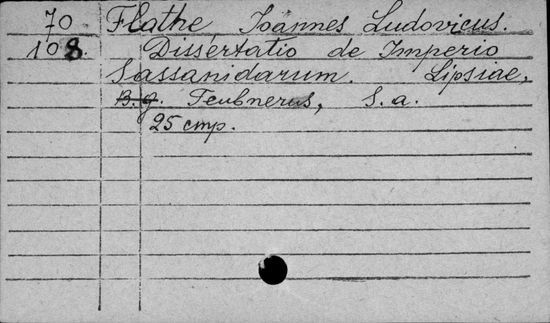 70 Flathe, Joannes Ludovicus.
108. Dissertatio de Imperio
Sassanidarum. Lipsiae,
B.G. Teubnerus, S.a.
25 стр.